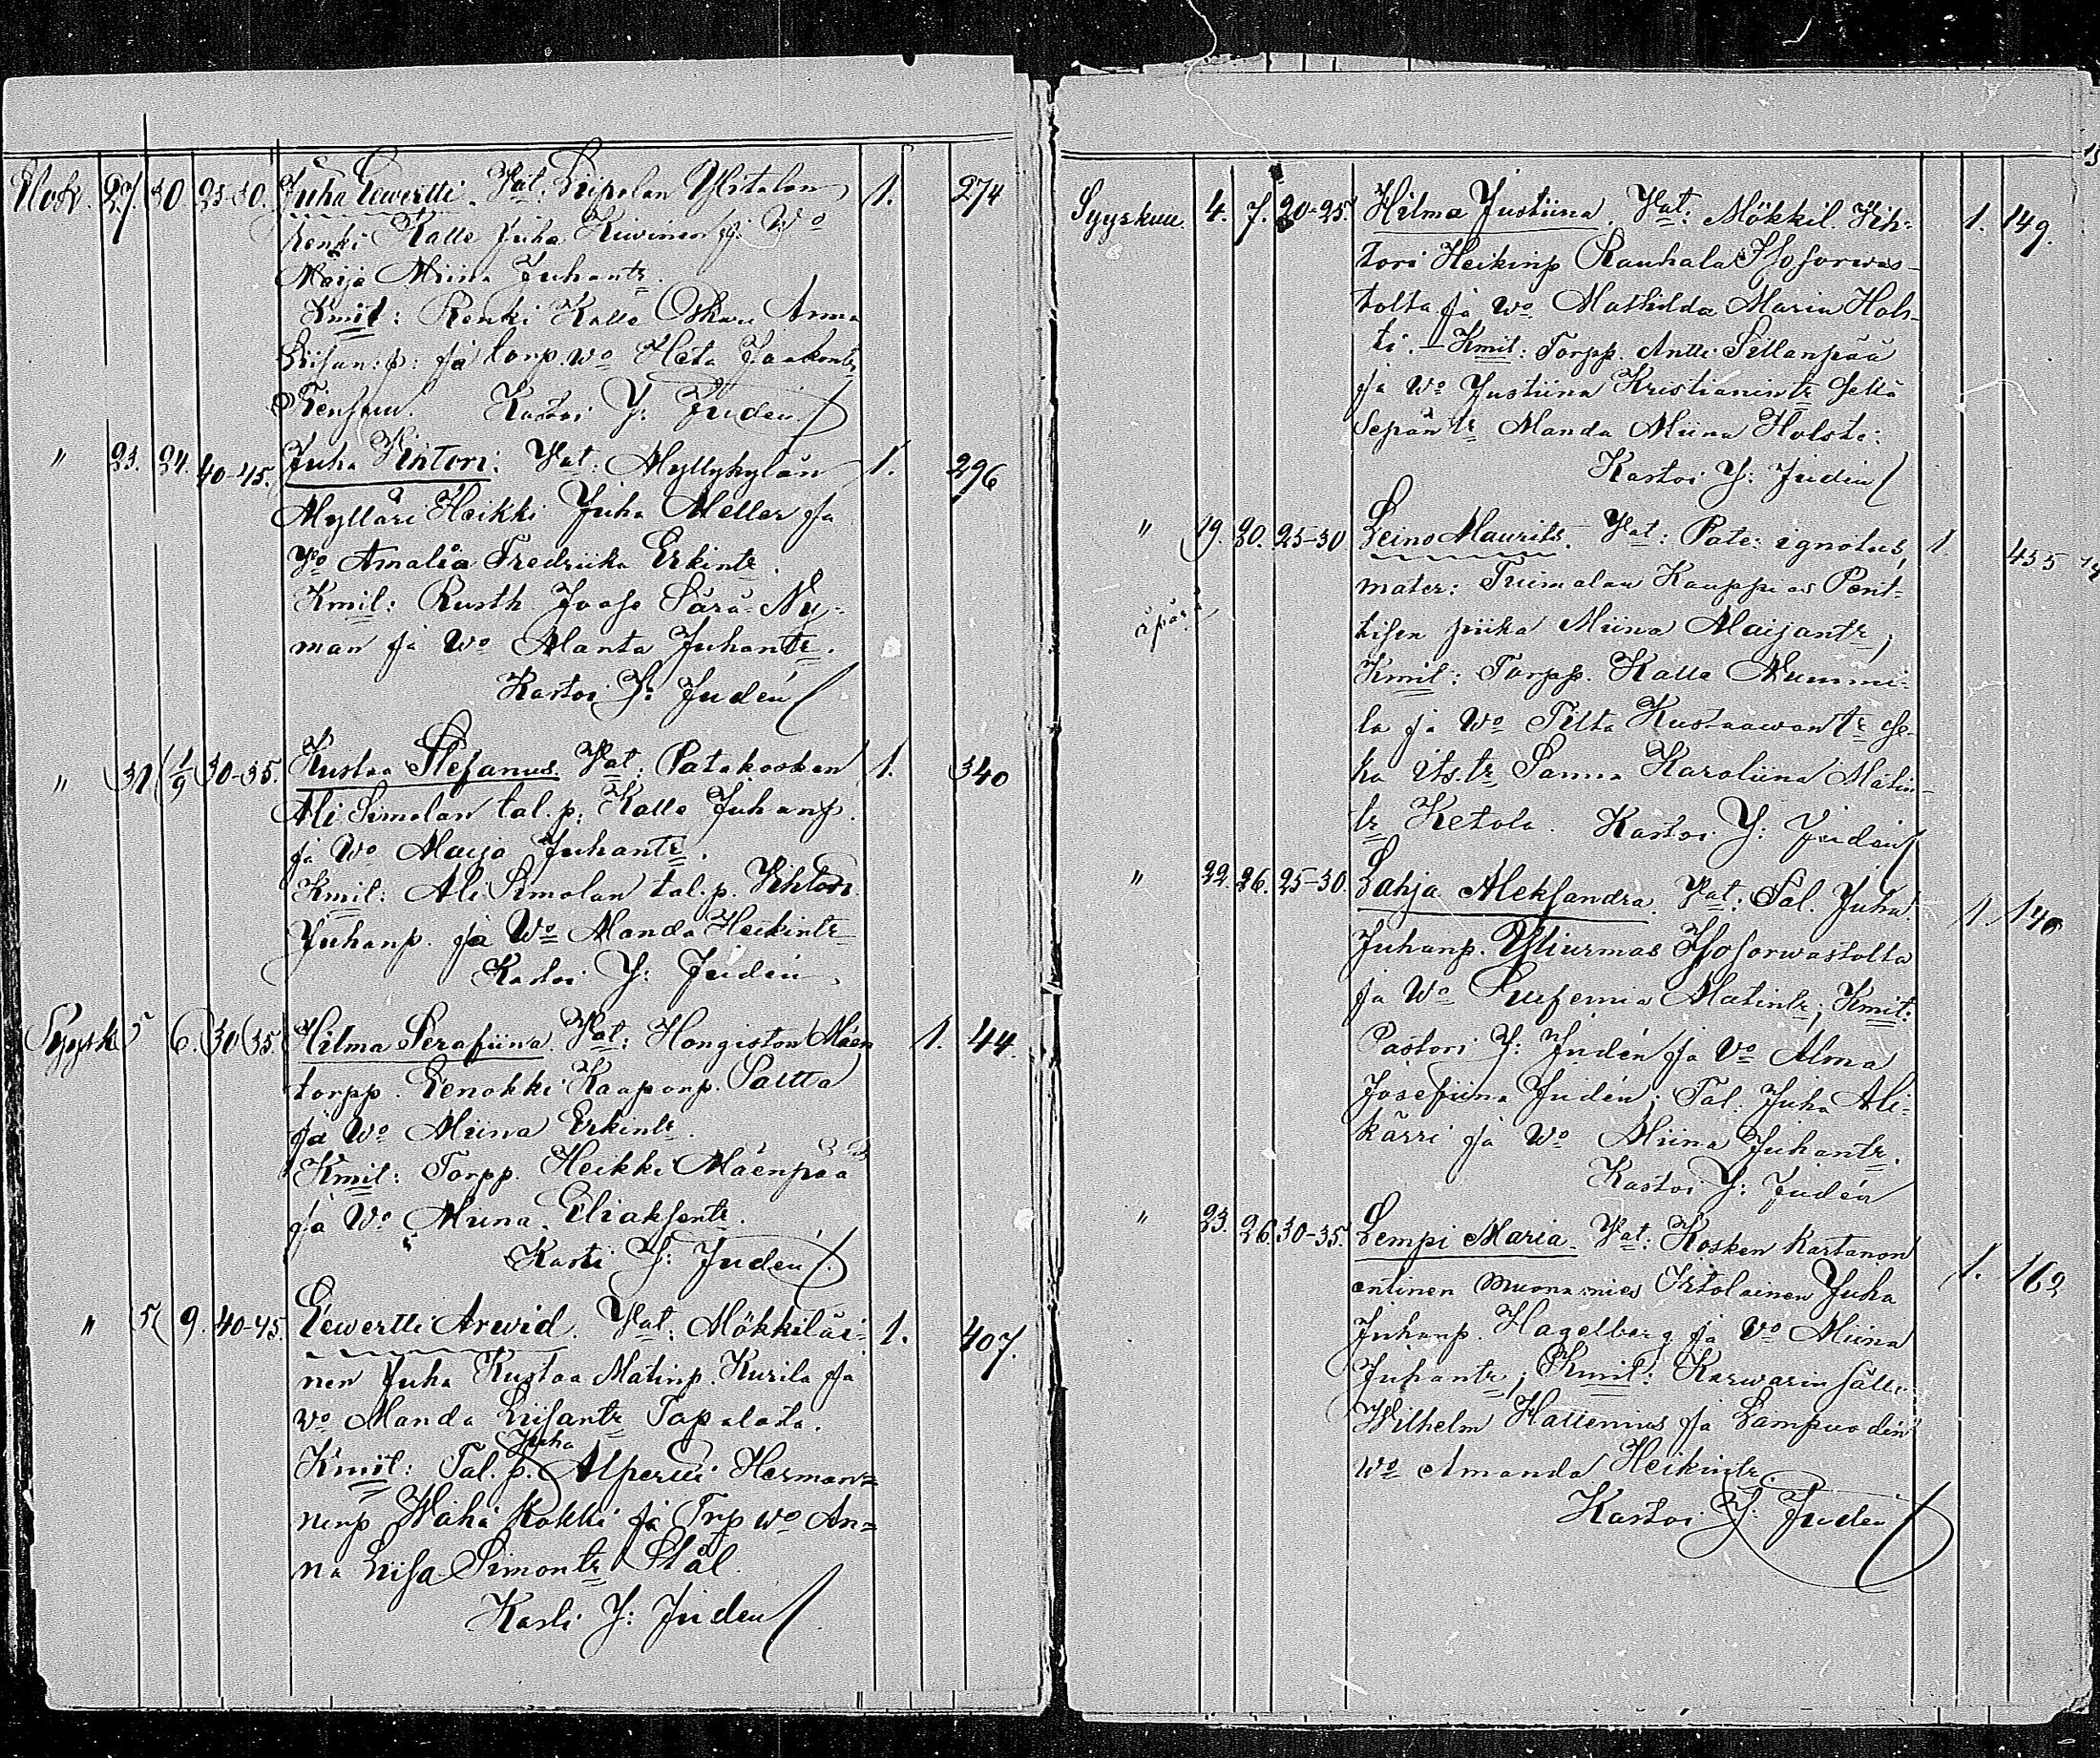 Elok. 27. 30. 25-30. Juha Eewertti. Vat: Liipolan Ylitalon 1. 274
renki Kalle Juha Kiwinen ja Wo
Maija Miina Juhantr.
Kmit: Renki Kalle Oskari Anna
Liisan: p: ja torp. wo Heta Jaakontr
Kastoi Y: Judén
" 23. 24. 40-45. Juha Vihtori. Vat: Myllykylän 1. 296
Mylläri Heikki Juha Meller ja
Vo Amalia Fredriika Erkintr.
Kmit: Rusth. Joose Särä-Ny-
man ja Wo Manta Juhantr.
Kastoi Y: Judén
" 31 1/9 30-35. Kustaa Stefanus. Vat: Patakosken 1. 340
Ali Simolan tal. p. Kalle Juhanp.
ja Wo Maija Juhantr.
Kmit: Ali Simolan tal. p. Vihtori
Juhanp. ja Wo Manda Heikintr
Kastoi Y: Judén
Syysk 5 6. 30-35. Hilma Serafiina. Vat: Hongiston Mäen 1. 44.
torpp. Eenokki Kaaporp. Paltta
ja Wo Miina Erkintr.
Kmit: Torpp. Heikki Mäenpää
ja Wo Miina Eliaksentr.
Kasti Y: Judén
" 5 9. 40-45. Eewertti Arwid. Vat: Mökkiläi- 1. 407.
nen Juha Kustaa Matinp. Kurila ja
vo Manda Liisantr Tapalasta.
Juha
Kmit: Tal. p. Alpertti Herman=
ninp Wähä Kokki ja Trp wo An=
na Liisa Simontr Stål.
Kasti Y: Judén
Syyskuu. 4. 7. 20-25. Hilma Justiina. Vat: Mökkil. Vih-
1. 149.
tori Heikinp Rauhala Isosorwas-
tolta ja wo Mathilda Maria Hols-
ti. - Kmit: Torpp. Antti Sillanpää
ja Wo Justiina Kristianintr sekä
Sepän tr Manda Miina Holsti:
Kastoi Y: Judén
" 19. 20. 25-30 Leino Maurits. Vat: Pater ignotus, 1. 455
mater: Tuimalan Kauppias Pent-
äpärä
tisen piika Miina Maijantr;
Kmit: Torpp. Kalle Nummi-
la ja Wo Tilta Kustaawantr se-
kä Its. tr Sanna Karoliina Matin-
tr Ketola. Kastoi Y: Judén
" 22. 26. 25-30. Lahja Aleksandra. Vat: Tal. Juha
1. 140
Juhanp. Yliurmas Isosorwastolta
ja Wo Eufemia Matintr; Kmit:
Pastori Y: Judén ja Vo Alma
Josefiina Judén; Tal: Juha Ali-
kärri ja Wo Miina Juhantr.
Kastoi Y: Judén
" 23. 26. 30-35. Lempi Maria. Vat: Kosken Kartanon
1. 162
entinen muonamies Irtolainen Juha
Juhanp. Hagelberg ja Vo Miina
Juhantr; Kmit: Karwarin sälli
Wilhelm Hallenius ja Lampuodin
wo Amanda Heikintr.
Kastoi Y: Judén